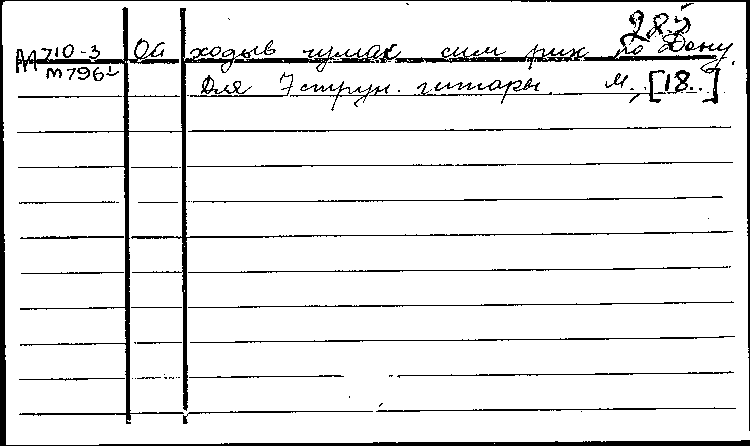 283
М 710-3 Ой ходыв чумак сим рик по Дону.
М796
Для 7 струн. гитары. М., [18..]